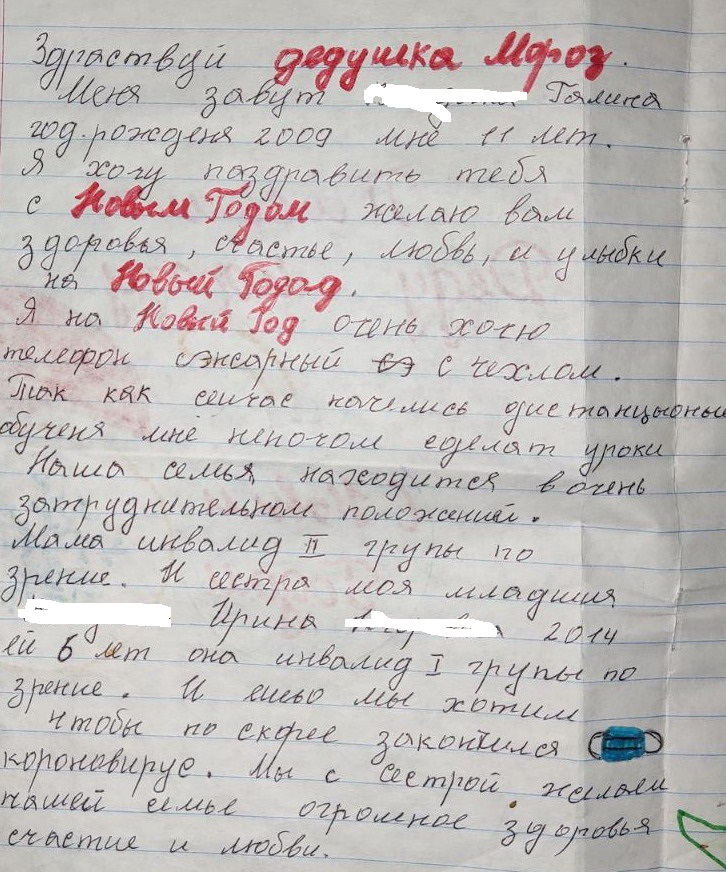 Здраствуй дедушка Мороз.
Меня завут Галина
год.рожденя 2009 мне 11 лет.
Я хочу паздравить тебя
с Новым Годом желаю вам
здоровья, счастье, любвь, и улыбки
на Новый Годод.
Я на Новый Год очень хочю
телефон сэнсарный с чехлом.
Так как сейчас начелись дистанцыоные
обученя мне неночом сделат уроки
Наша семья находится в очень
затруднительном положений.
Мама инвалид II групы по
зрение. И сестра моя младшия
Ирина 2014
ей 6 лет она инвалид I групы по
зрение. И мы хотим
чтобы по скорее закончился
короновирус. Мы с сестрой желаем
нашей семье огромное здоровья
счастие и любви.